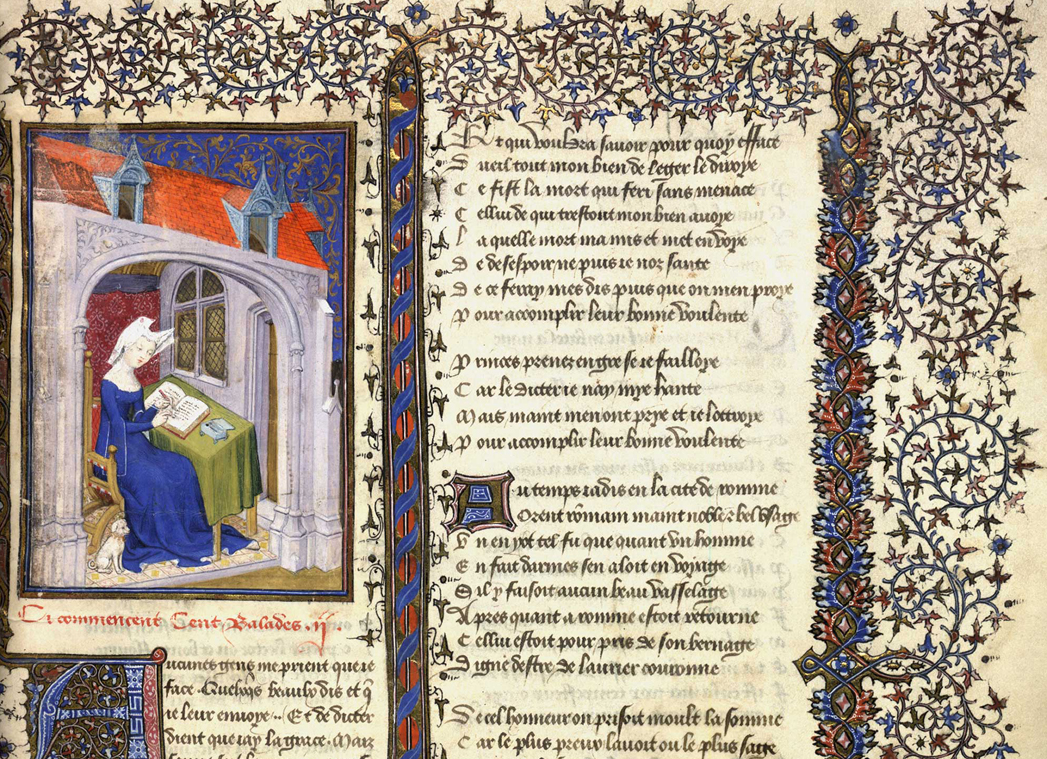 Ci commencent Cent Balades .ij.
Aucunes gens me prient que ie
face . Quelqs beaulx dis et q
ie leur enuoye . Et de dicter
dient que iay la grace . Mais
Et qui vouldra sauoir pour quoy efface
Dueil tout mon bien de leger le diroye
Ce fist la mort qui feri sans menace
Cellui de qui trestout mon bien auoye
Laquelle mort ma mis et met en voye
De desespoir ne puis ie noz sante
De ce feray mes dis puis que on men proye
Pour accomplir leur bonne voulente
Princes prenez en gre se ie failloye
Car le dicter ie nay mye hante
Mais maint men ont prye et ie lottroye
Pour accomplir leur bonne voulente
Au temps iadis en la cite de romme
Orent rommain maint noble et bel vsage
Vn en yot tel fu que quant vn homme
En fait darmes sen aloit en voyage
Sil y faisoit aucun beau vasselage
Apres quant a romme estoit retourne
Cellui estoit pour pris de son bernage
Digne destre de laurier couronne
De cel honneur on prisoit moult la somme
Car le plus preux lauoit ou le plus sage